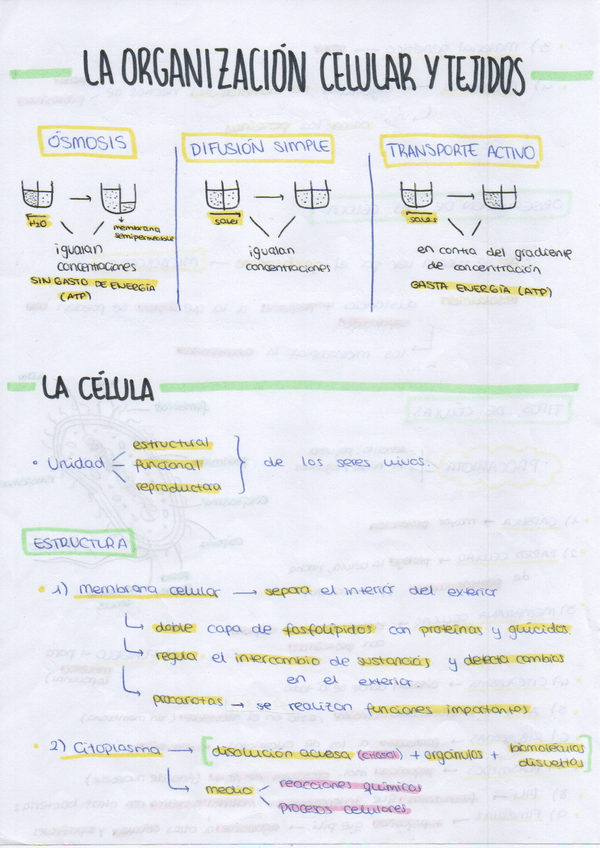 LA ORGANIZACIÓN CELULAR Y TEJIDOS
ÓSMOSIS
H2O
membrana
semipermeable
igualan
concentraciones
SIN GASTO DE ENERGÍA
(ATP)
DIFUSIÓN SIMPLE
sales
igualan
concentraciones
TRANSPORTE ACTIVO
sales
en contra del gradiente
de concentración
GASTA ENERGÍA (ATP)
LA CÉLULA
• Unidad
estructural
funcional
reproductora
de los seres vivos.
ESTRUCTURA
• 1) Membrana celular → separa el interior del exterior
↳ doble capa de fosfolípidos con proteínas y glúcidos
↳ regula el intercambio de sustancias y detecta cambios
en el exterior
↳ procariotas → se realizan funciones importantes
• 2) Citoplasma → [disolución acuosa (citosol) + orgánulos + biomoléculas
disueltas]
↳ medio < reacciones químicas
procesos celulares